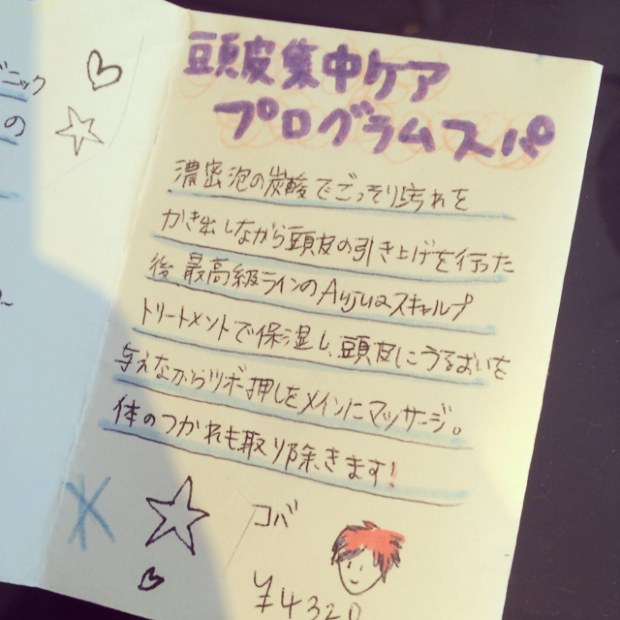 ニック
の
頭皮集中ケア
プログラムスパ
濃密泡の炭酸でごっそり汚れを
かき出しながら頭皮の引き上げを行った
後、最高級ラインのAujuaスキャルプ
トリートメントで保湿し、頭皮にうるおいを
与えながらツボ押しをメインにマッサージ。
体のつかれも取り除きます!
コバ
¥4320